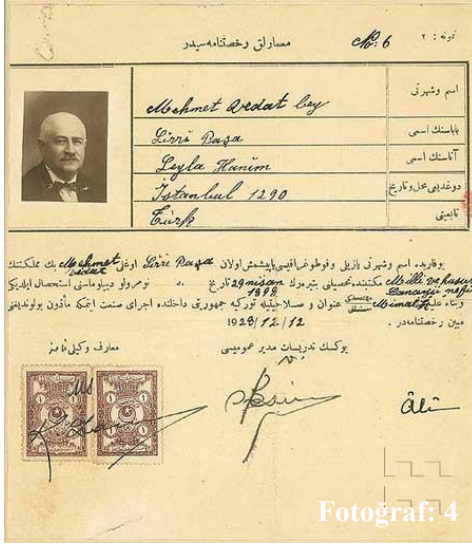 نمونه : ٢
معمارلق رخصتنامه سیدر
№: 6
اسم و شهرتی
Mehmet Vedat bey
باباسنك اسمی
Sırrı Paşa
آناسنك اسمی
Leyla Hanım
دوغدیغی محل و تاریخ
İstanbul 1290
تابعیتی
Türk
یوقاریده اسم و شهرتی یازیلی و فوطوغرافیسی یاپیشمش اولان Sırrı Paşa اوغلی Mehmet Vedat بك مملكتنك
مكتبنده تحصیلنی بیتیره‌رك 29 nisan 1898 تاریخ نومرولو دیپلوماسنی استحصال ایلدیكی
عنوان و صلاحیتیله توركیه جمهوریتی داخلنده اجرای صنعت ایتمكه مأذون بولوندیغنی
مبین رخصتنامه در . 1928/12/12
یوكسك تدریسات مدیر عمومیسی
معارف وكیلی نامنه
Âli
Fotoğraf: 4